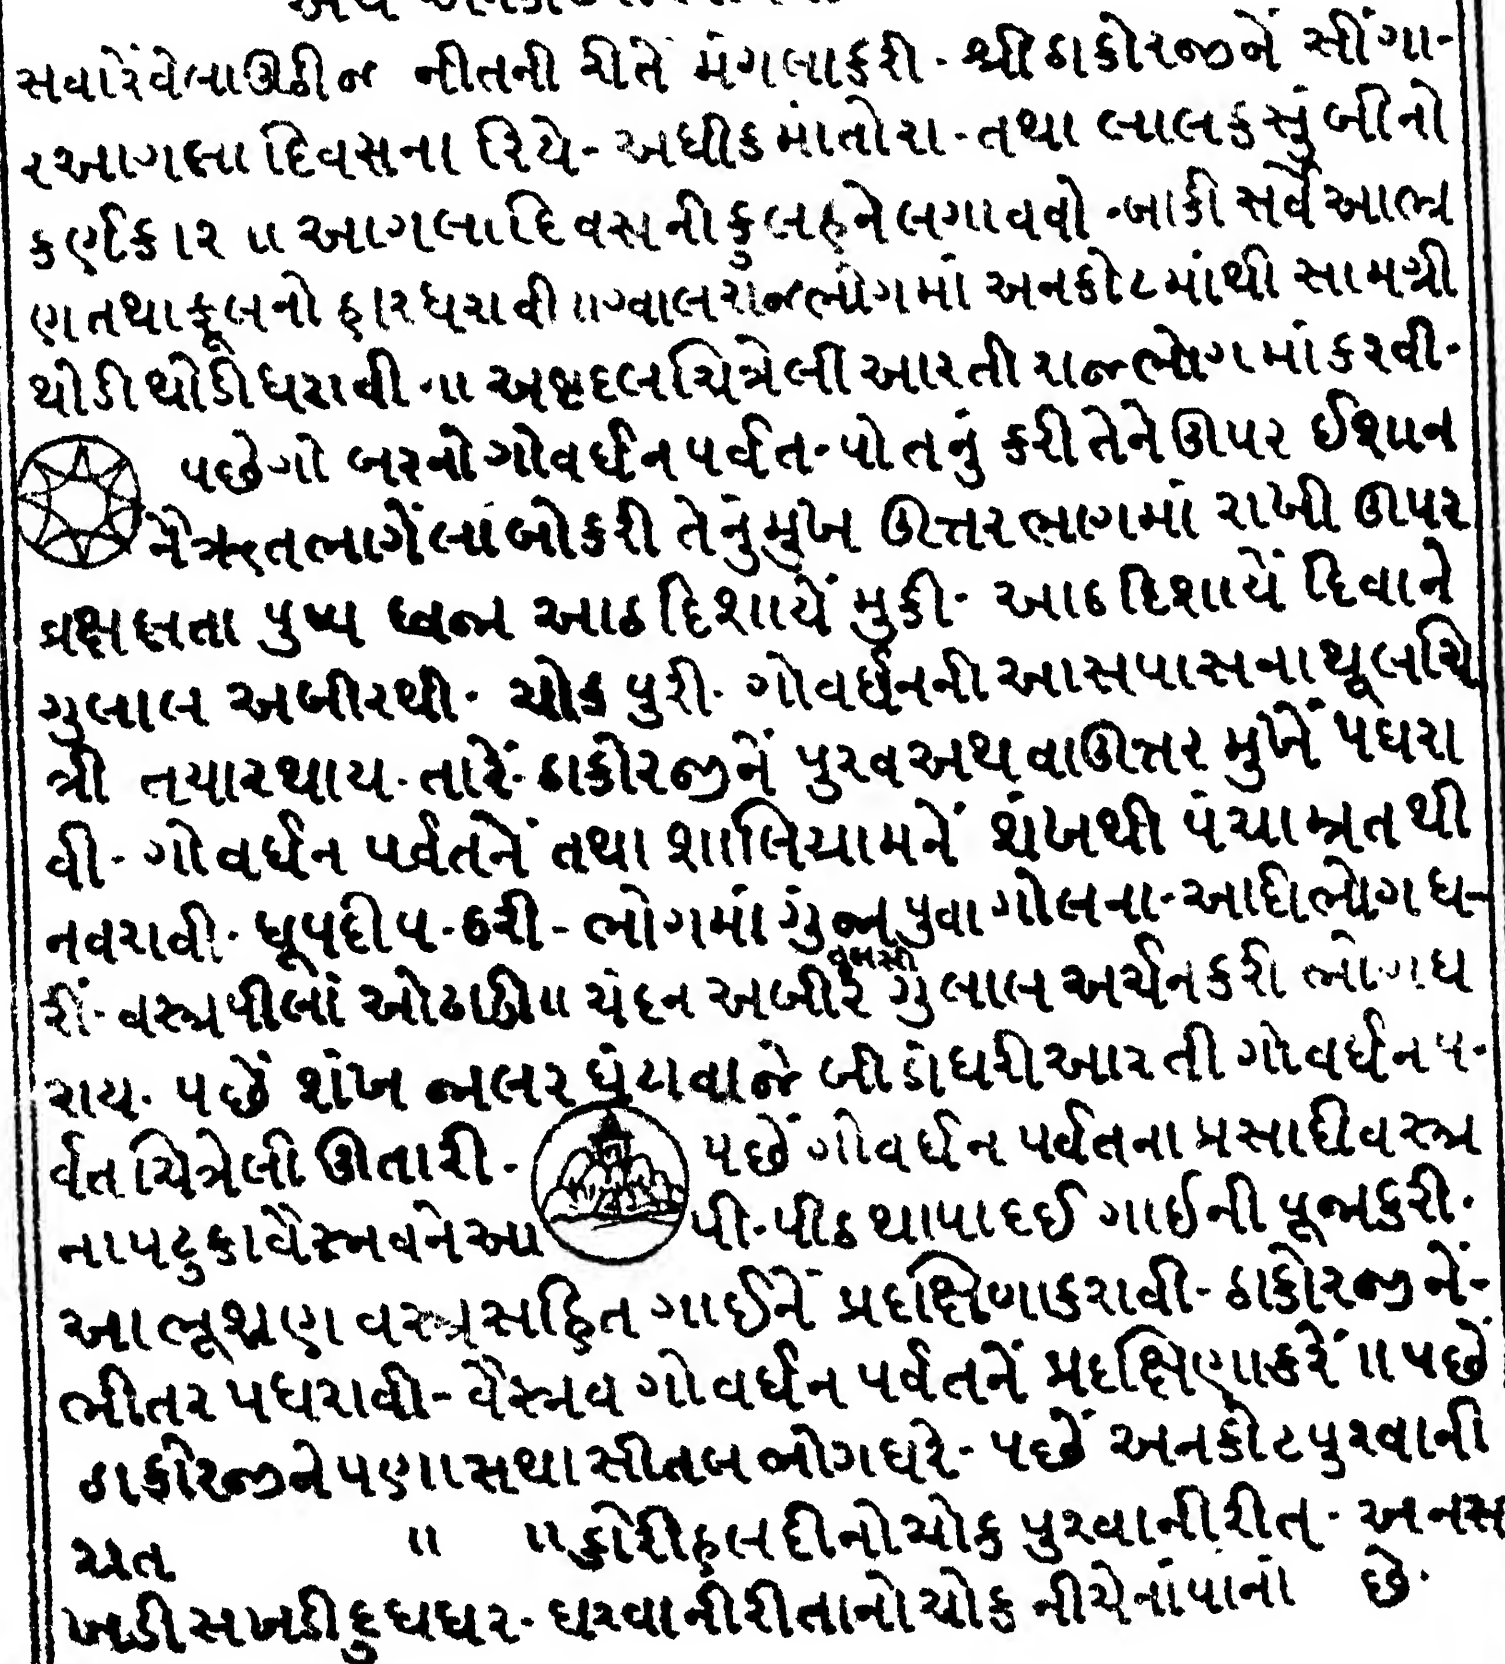 સવારેંવેલાઊઠીને નીતની રીતેં મંગલાકરી - શ્રીઠાકોરજીનેં સીંગા-
રઆગલા દિવસના રિયે - અધીકમાંતોરા - તથા લાલકસુંબીનો
કર્ણકાર ॥ આગલાદિવસનીકુલહનેલગાવવો - બાકી સર્વેઆભ્ર
ણતથાફૂલનો હારધરાવી ॥ ગ્વાલરાજભોગમાં અનકોટમાંથી સામગ્રી
થોડીથોડીધરાવી ॥ અષ્ટદલચિત્રેલી આરતી રાજભોગમાંકરવી -
પછેગોબરનોગોવર્ધનપર્વત - પોતનું કરીતેનેઊપર ઈશાન
નૈઋતભાગેંલાંબોકરી તેનુંમુખ ઊત્તરભાગમાં રાખી ઊપર
વ્રક્ષલતા પુષ્પ ધ્વજા આઠદિશાયેં મુકી - આઠદિશાયેં દિવાને
ગુલાલ અબીરથી - ચોક પુરી - ગોવર્ધનની આસપાસનાથૂલચિ
ત્રી તયારથાય - તારેં - ઠાકોરજીનેં પુરવઅથવાઊત્તર મુખેં પધરા
વી - ગોવર્ધન પર્વતનેં તથા શાલિગ્રામનેં શંખથી પંચામ્રતથી
નવરાવી - ધૂપદીપ - કરી - ભોગમાં ગુંજા પુવા ગોલના - આદીભોગ ધ-
રીં - વસ્ત્રપીલાં ઓઢાડી ॥ ચંદન અબીર તુલસી ગુલાલ અર્ચનકરી ભોગધ
રાય - પછેં શંખ જાલર ઘંટાવાજે બીડાંધરીઆરતી ગોવર્ધનપ-
ર્વતચિત્રેલી ઊતારી - પછેં ગોવર્ધન પર્વતના પ્રસાદીવસ્ત્ર
નાપટુકાવૈસ્નવનેઆપી - પીઠથાપાદઈ ગાઈની પૂજાકરી -
આભૂશણવસ્ત્રસહિત ગાઈનેં પ્રદક્ષિણાકરાવી - ઠાકોરજીનેં -
ભીતર પધરાવી - વૈસ્નવ ગોવર્ધન પર્વતનેં પ્રદક્ષિણાકરેં ॥ પછેં
ઠાકોરજીને પણા સથા સીતલ ભોગધરે - પછેં અનકોટપુરવાની
રીત ॥ ॥ કોરીહલદીનોચોક પુરવાનીરીત - અનસ
ખડીસખડીદુધઘર - ધરવાનીરીતાનોચોક નીચેનાંપાંનાં છે -